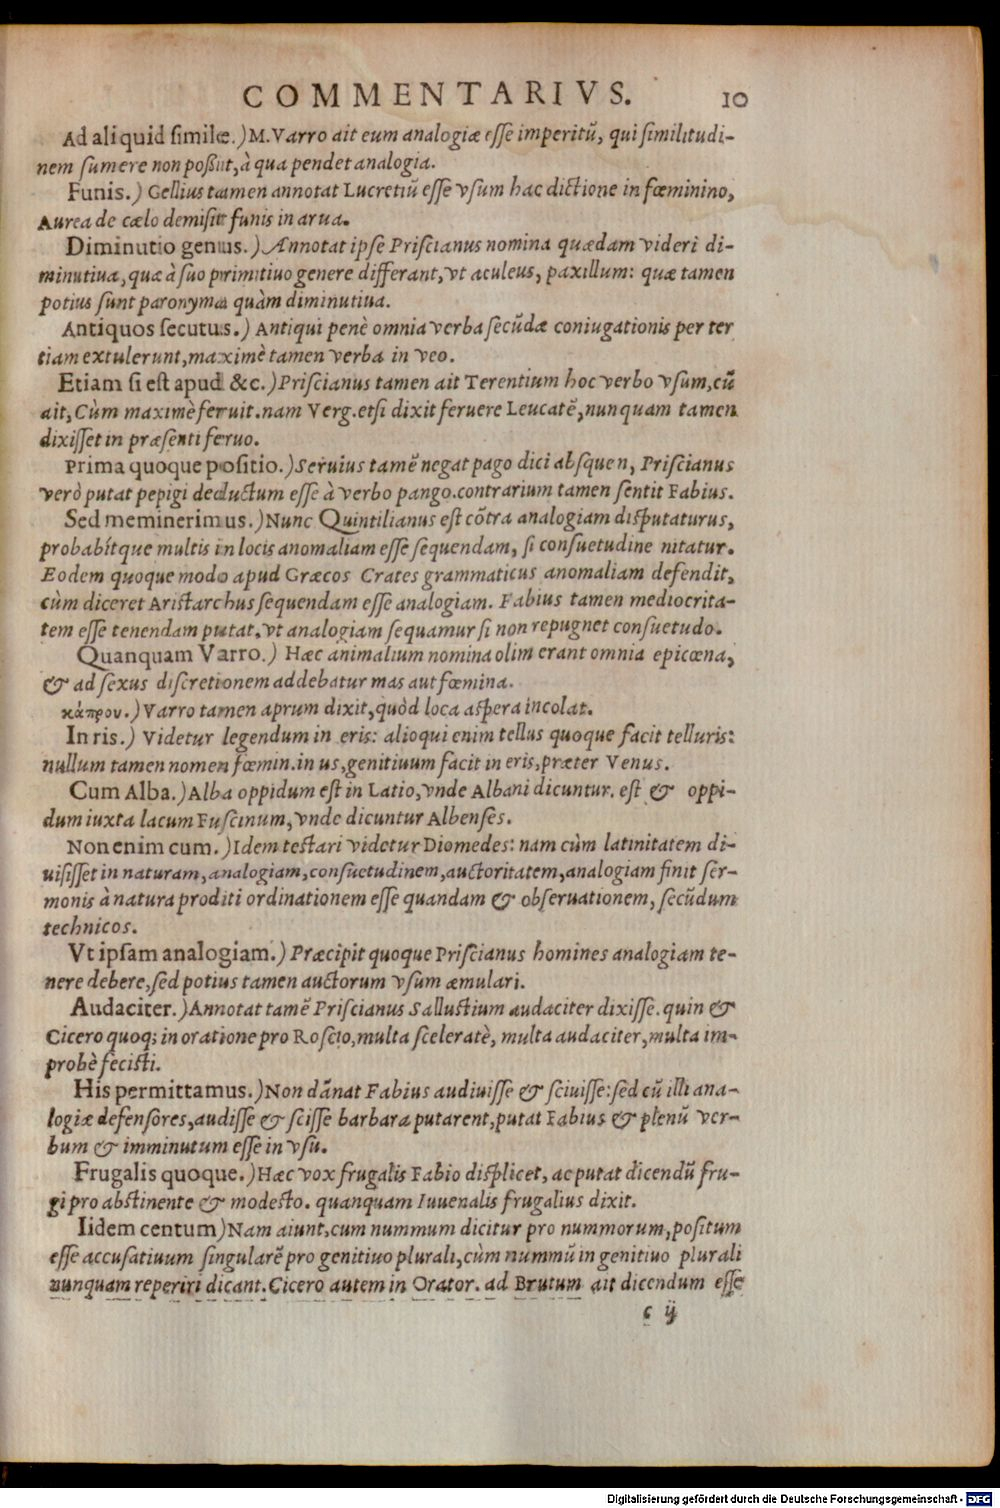 COMMENTARIVS. 10
Ad aliquid simile.) M. Varro ait eum analogiæ esse imperitū, qui similitudi-
nem sumere non possit, à qua pendet analogia.
Funis.) Gellius tamen annotat Lucretiū esse vsum hac dictione in fœminino,
Aurea de cælo demisit funis in arua.
Diminutio genus.) Annotat ipse Priscianus nomina quædam videri di-
minutiua, quæ à suo primitiuo genere differant, vt aculeus, paxillum: quæ tamen
potius sunt paronyma quàm diminutiua.
Antiquos secutus.) Antiqui penè omnia verba secūdæ coniugationis per ter
tiam extulerunt, maximè tamen verba in veo.
Etiam si est apud &c.) Priscianus tamen ait Terentium hoc verbo vsum, cū
ait, Cùm maximè feruit. nam Verg. etsi dixit feruere Leucatē, nunquam tamen
dixisset in præsenti feruo.
Prima quoque positio.) Seruius tamē negat pago dici absque n, Priscianus
verò putat pepigi deductum esse à verbo pango. contrarium tamen sentit Fabius.
Sed meminerimus.) Nunc Quintilianus est cōtra analogiam disputaturus,
probabítque multis in locis anomaliam esse sequendam, si consuetudine nitatur.
Eodem quoque modo apud Græcos Crates grammaticus anomaliam defendit,
cùm diceret Aristarchus sequendam esse analogiam. Fabius tamen mediocrita-
tem esse tenendam putat, vt analogiam sequamur si non repugnet consuetudo.
Quanquam Varro.) Hæc animalium nomina olim erant omnia epicœna,
& ad sexus discretionem addebatur mas aut fœmina.
κάπρου.) Varro tamen aprum dixit, quòd loca aspera incolat.
In ris.) Videtur legendum in eris: alioqui enim tellus quoque facit telluris:
nullum tamen nomen fœmin. in us, genitiuum facit in eris, præter Venus.
Cum Alba.) Alba oppidum est in Latio, vnde Albani dicuntur. est & oppi-
dum iuxta lacum Fuscinum, vnde dicuntur Albenses.
Non enim cum.) Idem testari videtur Diomedes: nam cùm latinitatem di-
uisisset in naturam, analogiam, consuetudinem, auctoritatem, analogiam finit ser-
monis à natura proditi ordinationem esse quandam & obseruationem, secūdum
technicos.
Vt ipsam analogiam.) Præcipit quoque Priscianus homines analogiam te-
nere debere, sed potius tamen auctorum vsum æmulari.
Audaciter.) Annotat tamē Priscianus Sallustium audaciter dixisse. quin &
Cicero quoq; in oratione pro Roscio, multa sceleratè, multa audaciter, multa im-
probè fecisti.
His permittamus.) Non dānat Fabius audiuisse & sciuisse: sed cū illi ana-
logiæ defensores, audisse & scisse barbara putarent, putat Fabius & plenū ver-
bum & imminutum esse in vsu.
Frugalis quoque.) Hæc vox frugalis Fabio displicet, ac putat dicendū fru-
gi pro abstinente & modesto. quanquam Iuuenalis frugalius dixit.
Iidem centum) Nam aiunt, cum nummum dicitur pro nummorum, positum
esse accusatiuum singularē pro genitiuo plurali, cùm nummū in genitiuo plurali
nunquam reperiri dicant. Cicero autem in Orator. ad Brutum ait dicendum esse
c ij
Digitalisierung gefördert durch die Deutsche Forschungsgemeinschaft - DFG